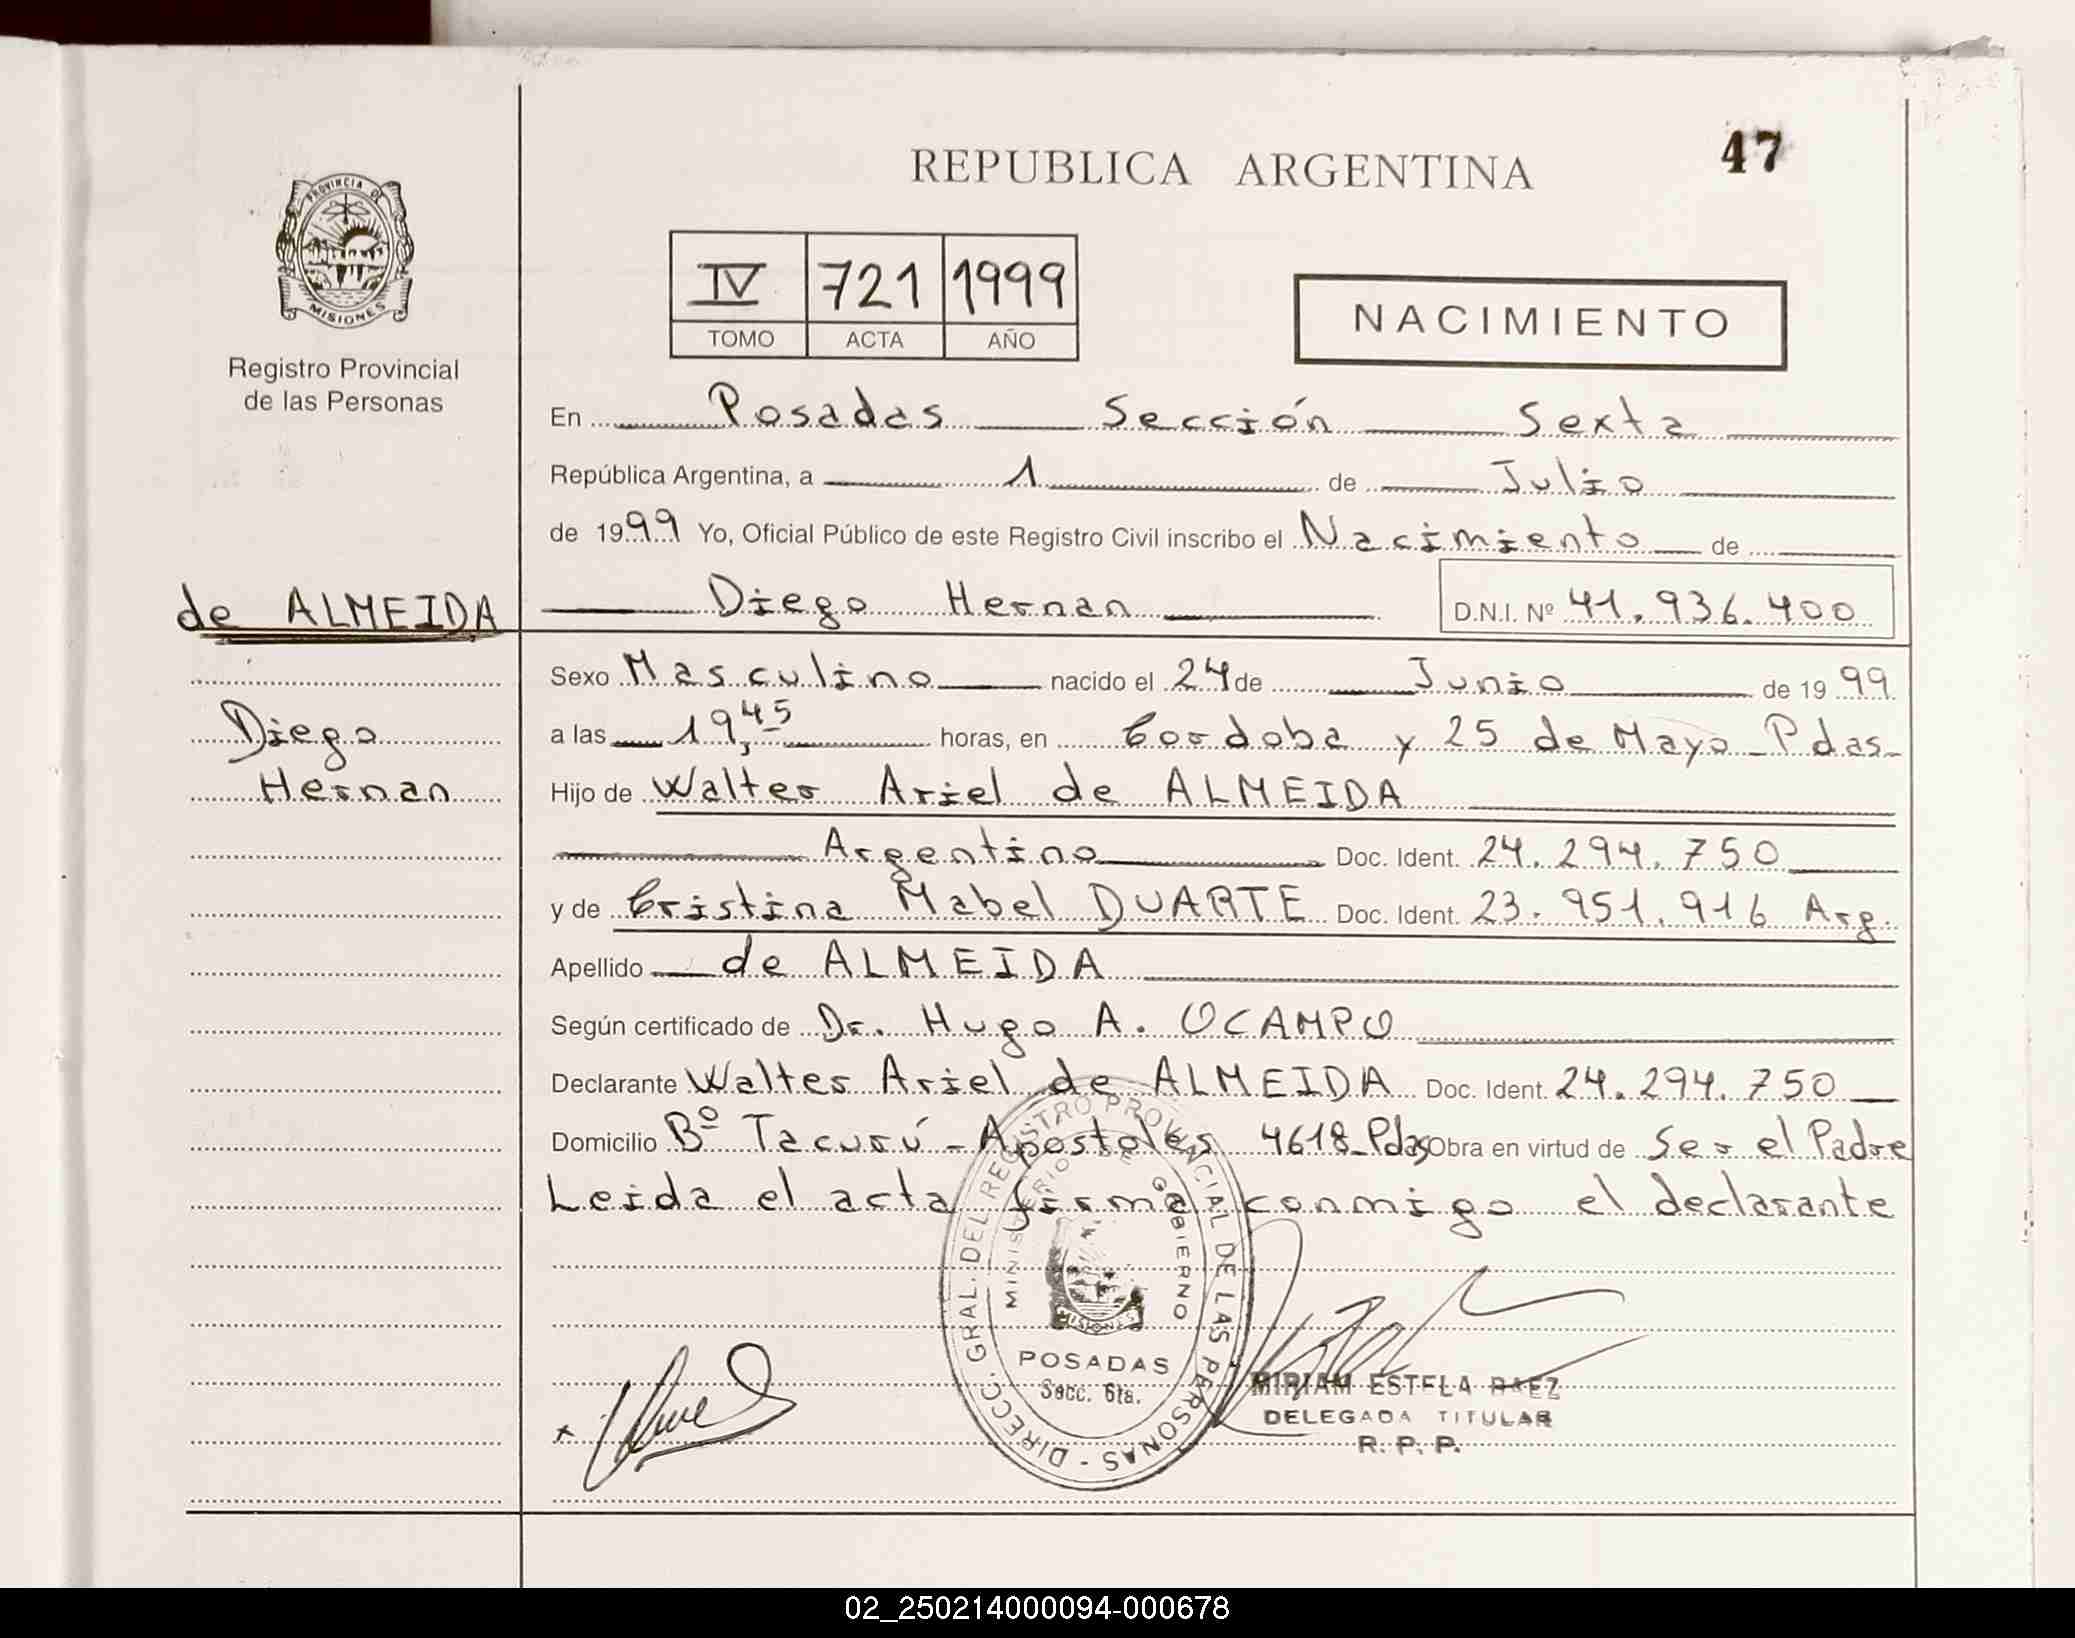 REPUBLICA ARGENTINA
47
PROVINCIA DE
MISIONES
Registro Provincial
de las Personas
IV 721 1999
TOMO ACTA AÑO
NACIMIENTO
En Posadas Sección Sexta
República Argentina, a 1 de Julio
de 1999 Yo, Oficial Público de este Registro Civil inscribo el Nacimiento de
de ALMEIDA Diego Hernan D.N.I. Nº 41.936.400
Sexo Masculino nacido el 24 de Junio de 1999
Diego a las 19,45 horas, en Cordoba y 25 de Mayo - Pdas-
Hernan Hijo de Walter Ariel de ALMEIDA
Argentino Doc. Ident. 24.294.750
y de Cristina Mabel DUARTE Doc. Ident. 23.951.916 Arg.
Apellido de ALMEIDA
Según certificado de Dr. Hugo A. OCAMPO
Declarante Walter Ariel de ALMEIDA Doc. Ident. 24.294.750
Domicilio Bº Tacurú - Apostoles 4618-Pdas Obra en virtud de Ser el Padre
Leida el acta firma conmigo el declarante
DIRECC. GRAL. DEL REGISTRO PROVINCIAL DE LAS PERSONAS -
MINISTERIO DE GOBIERNO
MISIONES
POSADAS
Secc. 6ta.
MIRIAM ESTELA BAEZ
DELEGADA TITULAR
R. P. P.
02_250214000094-000678